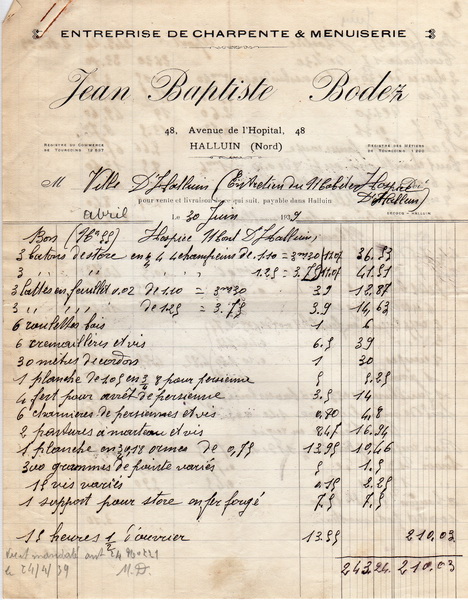 ENTREPRISE DE CHARPENTE & MENUISERIE
Jean Baptiste Bodez
48, Avenue de l'Hopital, 48
HALLUIN (Nord)
REGISTRE DU COMMERCE
DE TOURCOING
REGISTRE DES MÉTIERS
DE TOURCOING
M Ville D'Halluin (Entretien du Mobilier Hospice D'Halluin)
pour vente et livraison de ce qui suit, payable dans Halluin
avril Le 30 Juin 1939
Bon Hospice Mont D'Halluin
3 batons de store en 4 champeurs de 1.10 = 3m30 11.07 36.53
3 " " " 1.25 = 3.75 11.07 41.51
3 lattes en feuillet 0.02 de 1.10 = 3m30 3.9 12.87
3 " " de 1.25 = 3.75 3.9 14,63
6 roulettes bois 1 6
6 cremaillères et vis 6.5 39
30 mètres de cordons 1 30
1 planche de pour persienne 5 5.25
4 fert pour arrêt de persienne 3.5 14
6 charnières de persiennes et vis 0,80 4.8
2 à marteau et vis 847 16.94
1 planche en ormes de 0,75 13.95 10,46
300 grammes de pointe variés 5 1.5
15 vis variés 0.15 2.25
1 support pour store en fer forgé 7.5 7.5
15 heures 1/2 d'ouvrier 13.55 210,03
mandaté
le 24/4/39 M.D.
243.24 210.03